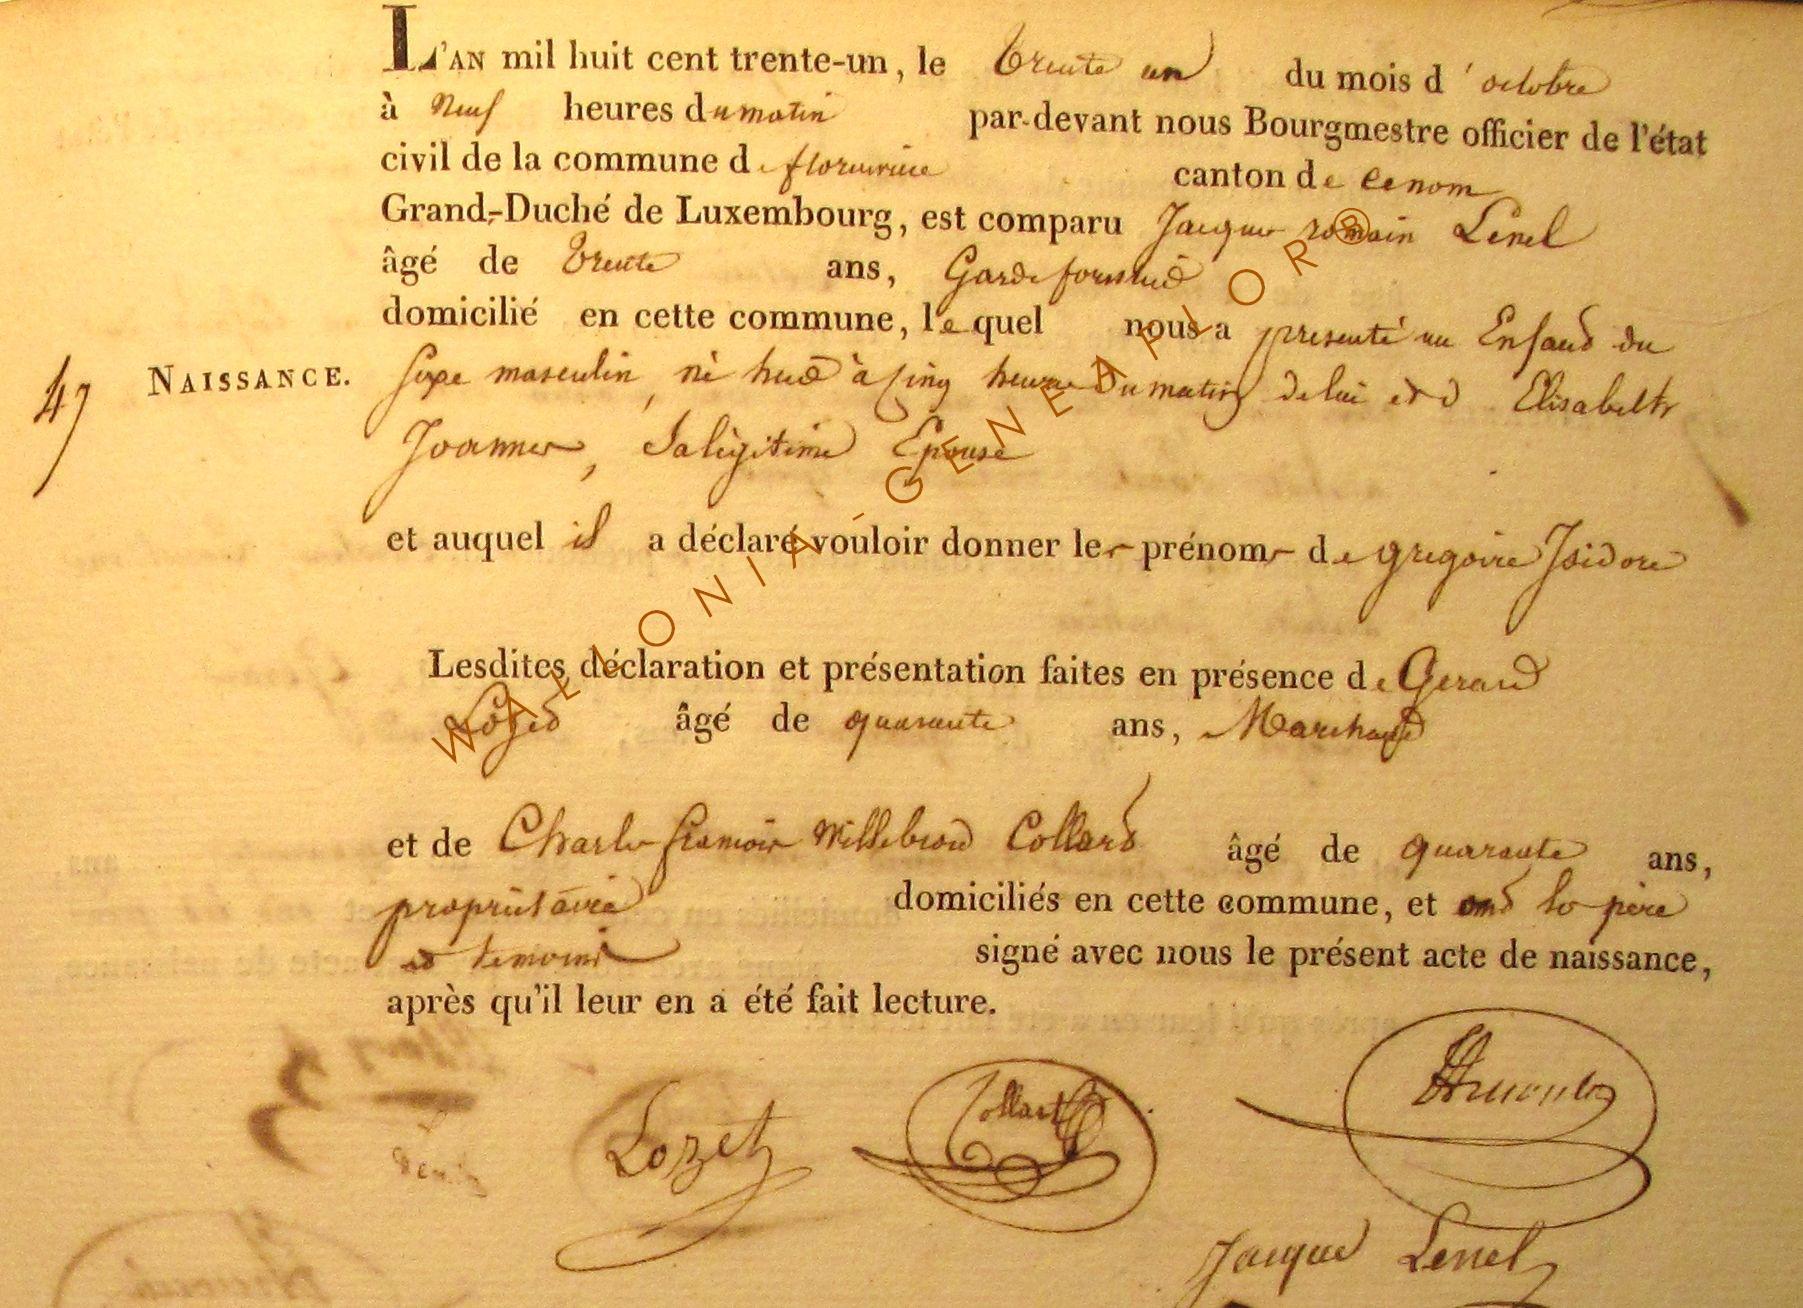 L'AN mil huit cent trente-un, le trente un du mois d'octobre
à neuf heures du matin par-devant nous Bourgmestre officier de l'état
civil de la commune de florenville canton de
Grand-Duché de Luxembourg, est comparu Jacques romain Lenel
âgé de trente ans, Garde forestier
domicilié en cette commune, lequel nous a presenté un Enfand du
47 NAISSANCE. sexe masculin, né hied à cinq heures du matin de lui et d Elisabeth
Joannes, Sa légitime Epouse
et auquel il a déclaré vouloir donner les prénoms de gregoire Isidore
Lesdites déclaration et présentation faites en présence de Gerard
Lozed âgé de quarante ans, Marchand
et de Charles francois Willebrord Collard âgé de quarante ans,
propriétaire domiciliés en cette commune, et ond le père
et temoins signé avec nous le présent acte de naissance,
après qu'il leur en a été fait lecture.
Lozet Collart
Jacque Lenel
WALLONIA-GENEAFLOR®